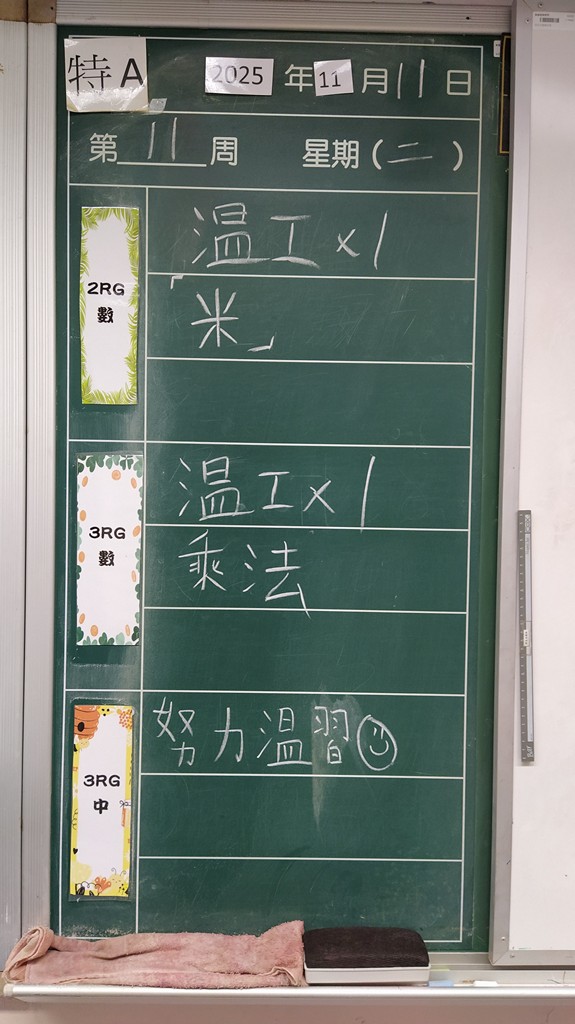 特A 2025年11月11日
第11周 星期(二)
2RG
數
温工x1
「米」
3RG
數
温工x1
乘法
3RG
中
努力温習